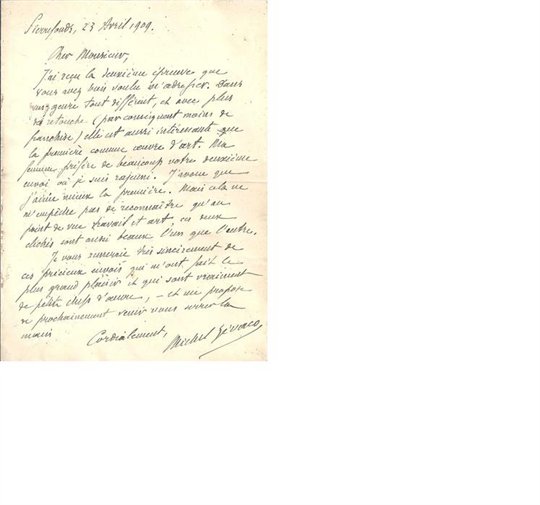 Pierrefonds, 23 Avril 1909.
Cher Monsieur,
J'ai reçu la deuxième épreuve que
vous avez bien voulu m'adresser. Dans
un genre tout différent, et avec plus
de retouche (par conséquent moins de
franchise) elle est aussi intéressante que
la première comme œuvre d'art. Ma
femme préfère de beaucoup votre deuxième
envoi où je suis rajeuni. J'avoue que
j'aime mieux la première. Mais cela ne
m'empêche pas de reconnaître qu'au
point de vue travail et art ces deux
clichés sont aussi beaux l'un que l'autre.
Je vous remercie très sincèrement de
ces précieux envois qui m'ont fait le
plus grand plaisir et qui sont vraiment
de petits chefs d'œuvre, — et me propose
de prochainement venir vous serrer la
main
Cordialement,
Michel Zévaco